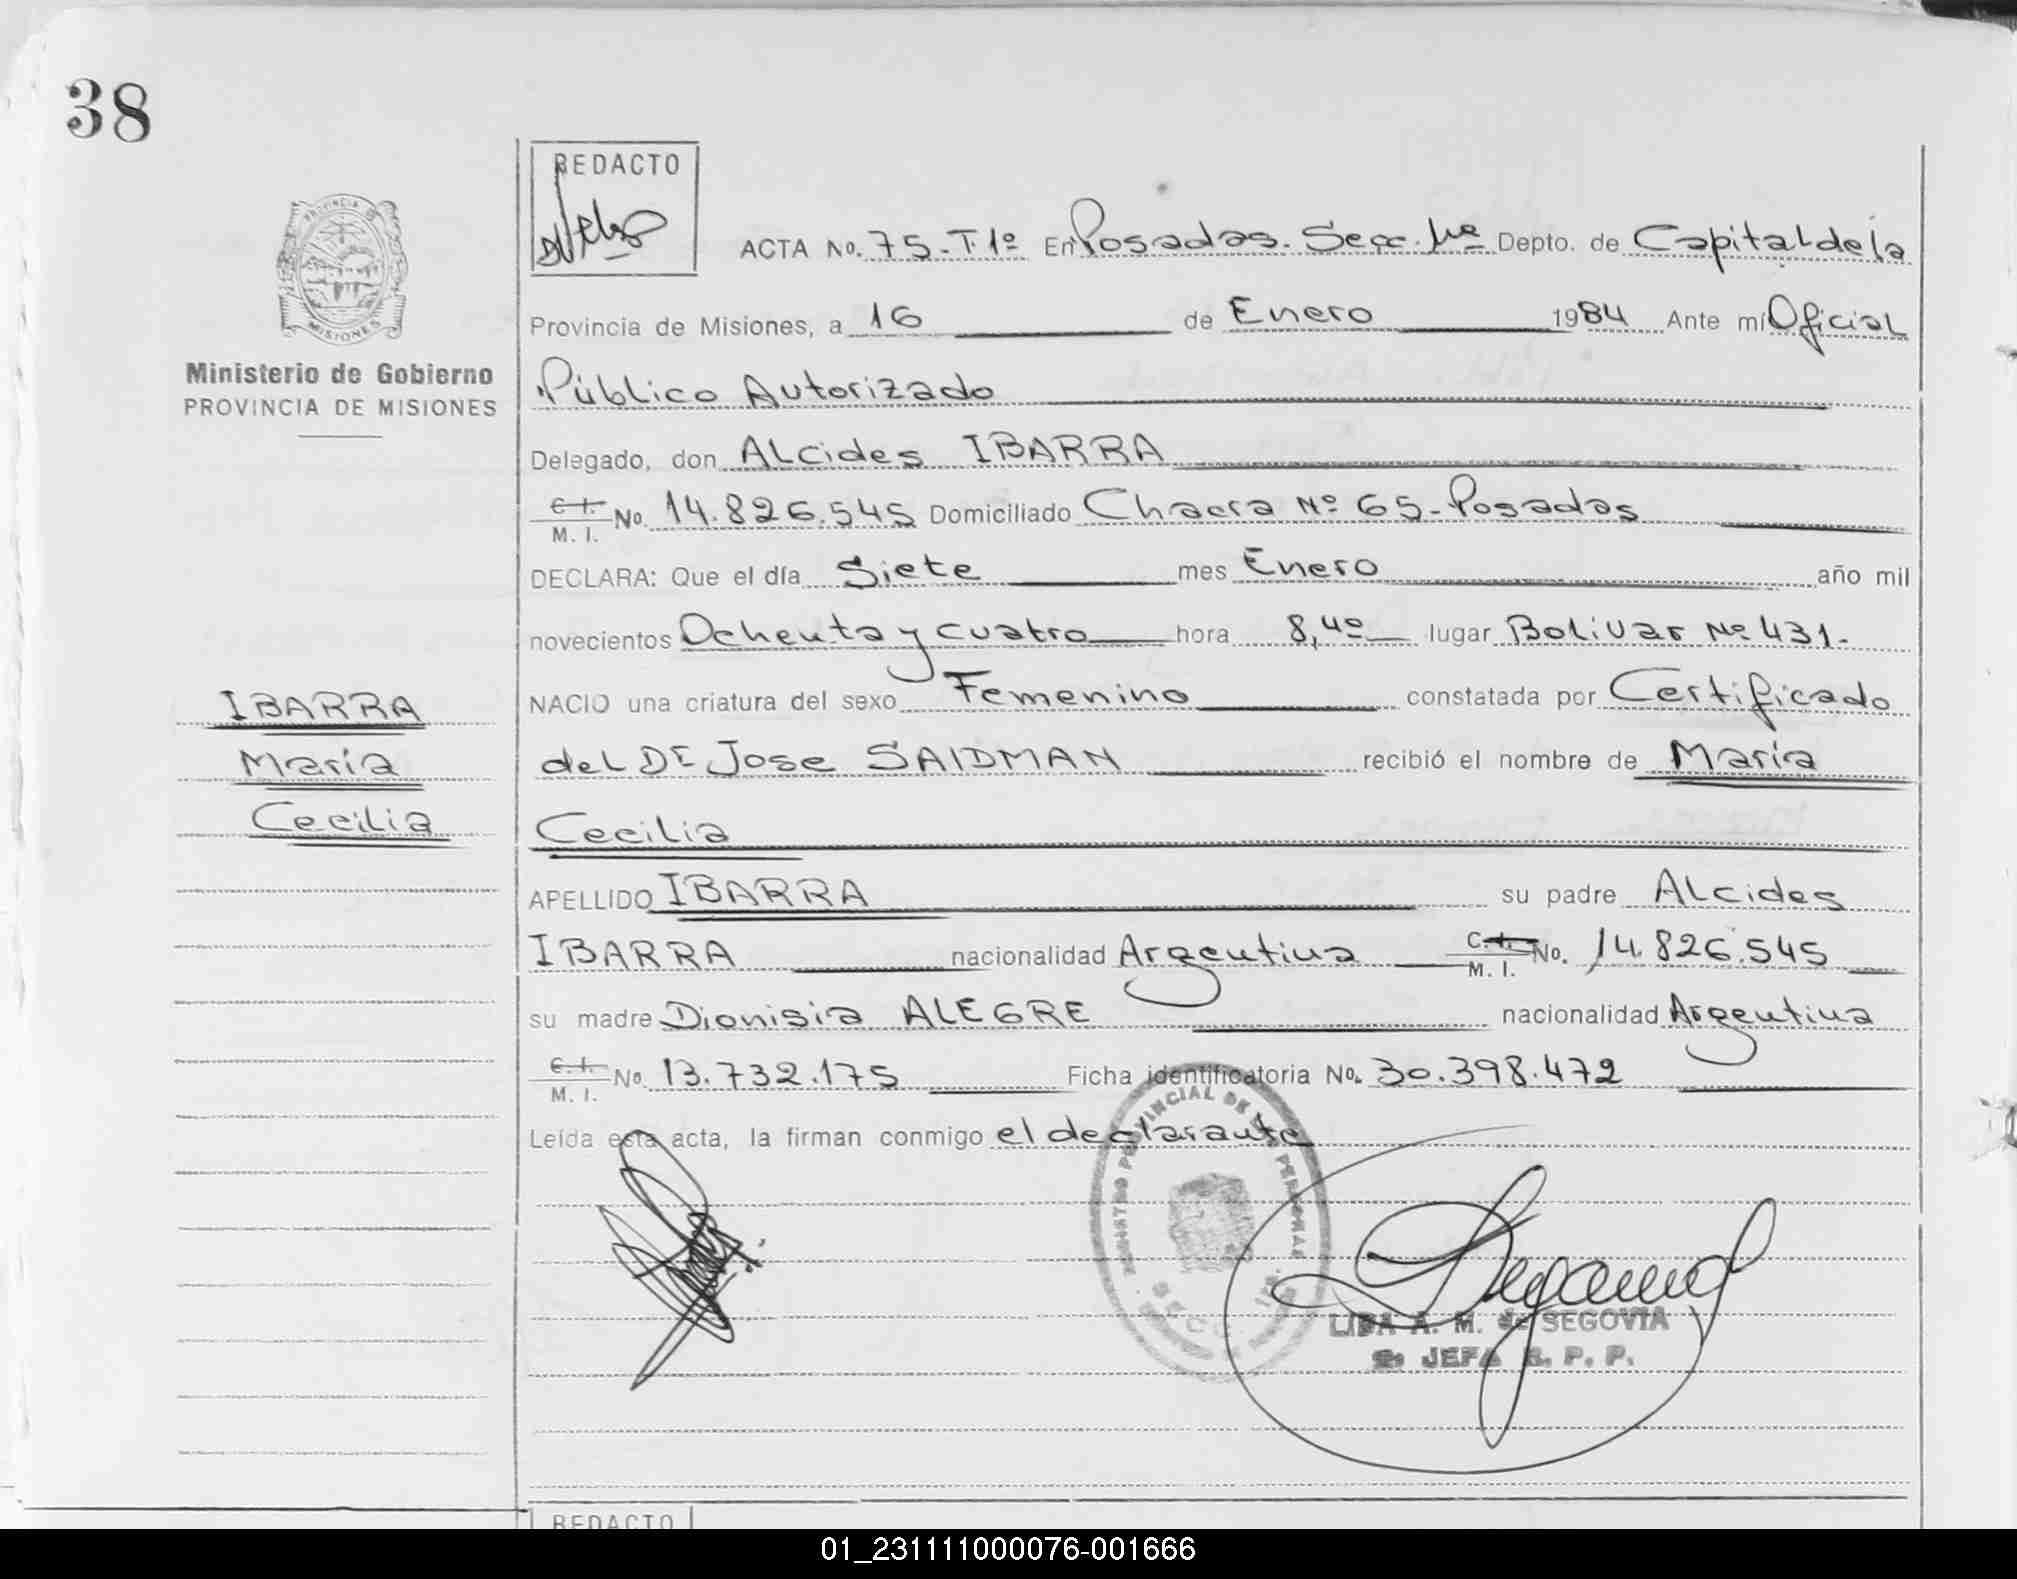 38
REDACTO
ACTA No. 75-T.1º En Posadas. Secc. 1ra Depto. de Capital de la
PROVINCIA DE MISIONES
Provincia de Misiones, a 16 de Enero 1984 Ante mí Oficial
Ministerio de Gobierno
PROVINCIA DE MISIONES
Público Autorizado
Delegado, don ALcides IBARRA
C. I. M. I. No. 14.826.545 Domiciliado Chacra Nº 65-Posadas
DECLARA: Que el día Siete mes Enero año mil
novecientos Ochenta y cuatro hora 8,40 lugar Bolivar Nº 431.
IBARRA
NACIO una criatura del sexo Femenino constatada por Certificado
María
del Dr Jose SAIDMAN recibió el nombre de María
Cecilia
Cecilia
APELLIDO IBARRA su padre ALcides
IBARRA nacionalidad Argentina C. I. M. I. No. 14.826.545
su madre Dionisia ALEGRE nacionalidad Argentina
C. I. M. I. No. 13.732.175 Ficha identificatoria No. 30.398.472
Leída esta acta, la firman conmigo el declarante
REGISTRO PROVINCIAL DE LAS PERSONAS
LIDA A. M. de SEGOVIA
2º JEFA R. P. P.
REDACTO
01_231111000076-001666